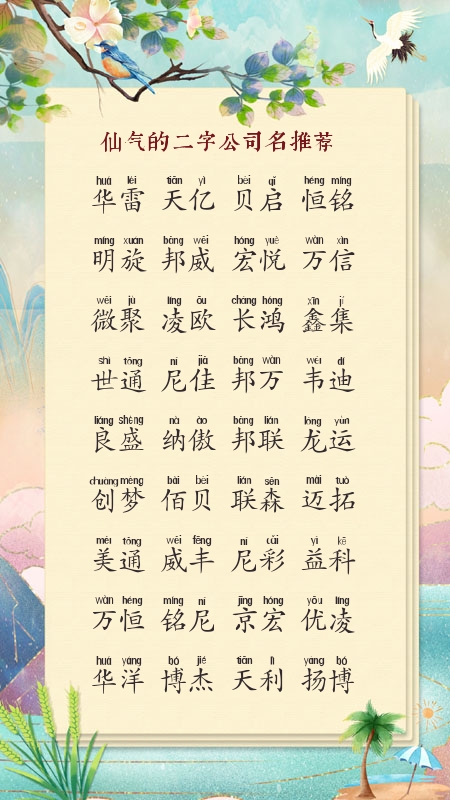 仙气的二字公司名推荐
huá léi tiān yì bèi qǐ héng míng
华雷 天亿 贝启 恒铭
míng xuán bāng wēi hóng yuè wàn xìn
明旋 邦威 宏悦 万信
wēi jù líng ōu cháng hóng xīn jí
微聚 凌欧 长鸿 鑫集
shì tōng ní jiā bāng wàn wéi dí
世通 尼佳 邦万 韦迪
liáng shèng nà ào bāng lián lóng yùn
良盛 纳傲 邦联 龙运
chuàng mèng bǎi bèi lián sēn mài tuò
创梦 佰贝 联森 迈拓
měi tōng wēi fēng ní cǎi yì kē
美通 威丰 尼彩 益科
wàn héng míng ní jīng hóng yōu líng
万恒 铭尼 京宏 优凌
huá yáng bó jié tiān lì yáng bó
华洋 博杰 天利 扬博